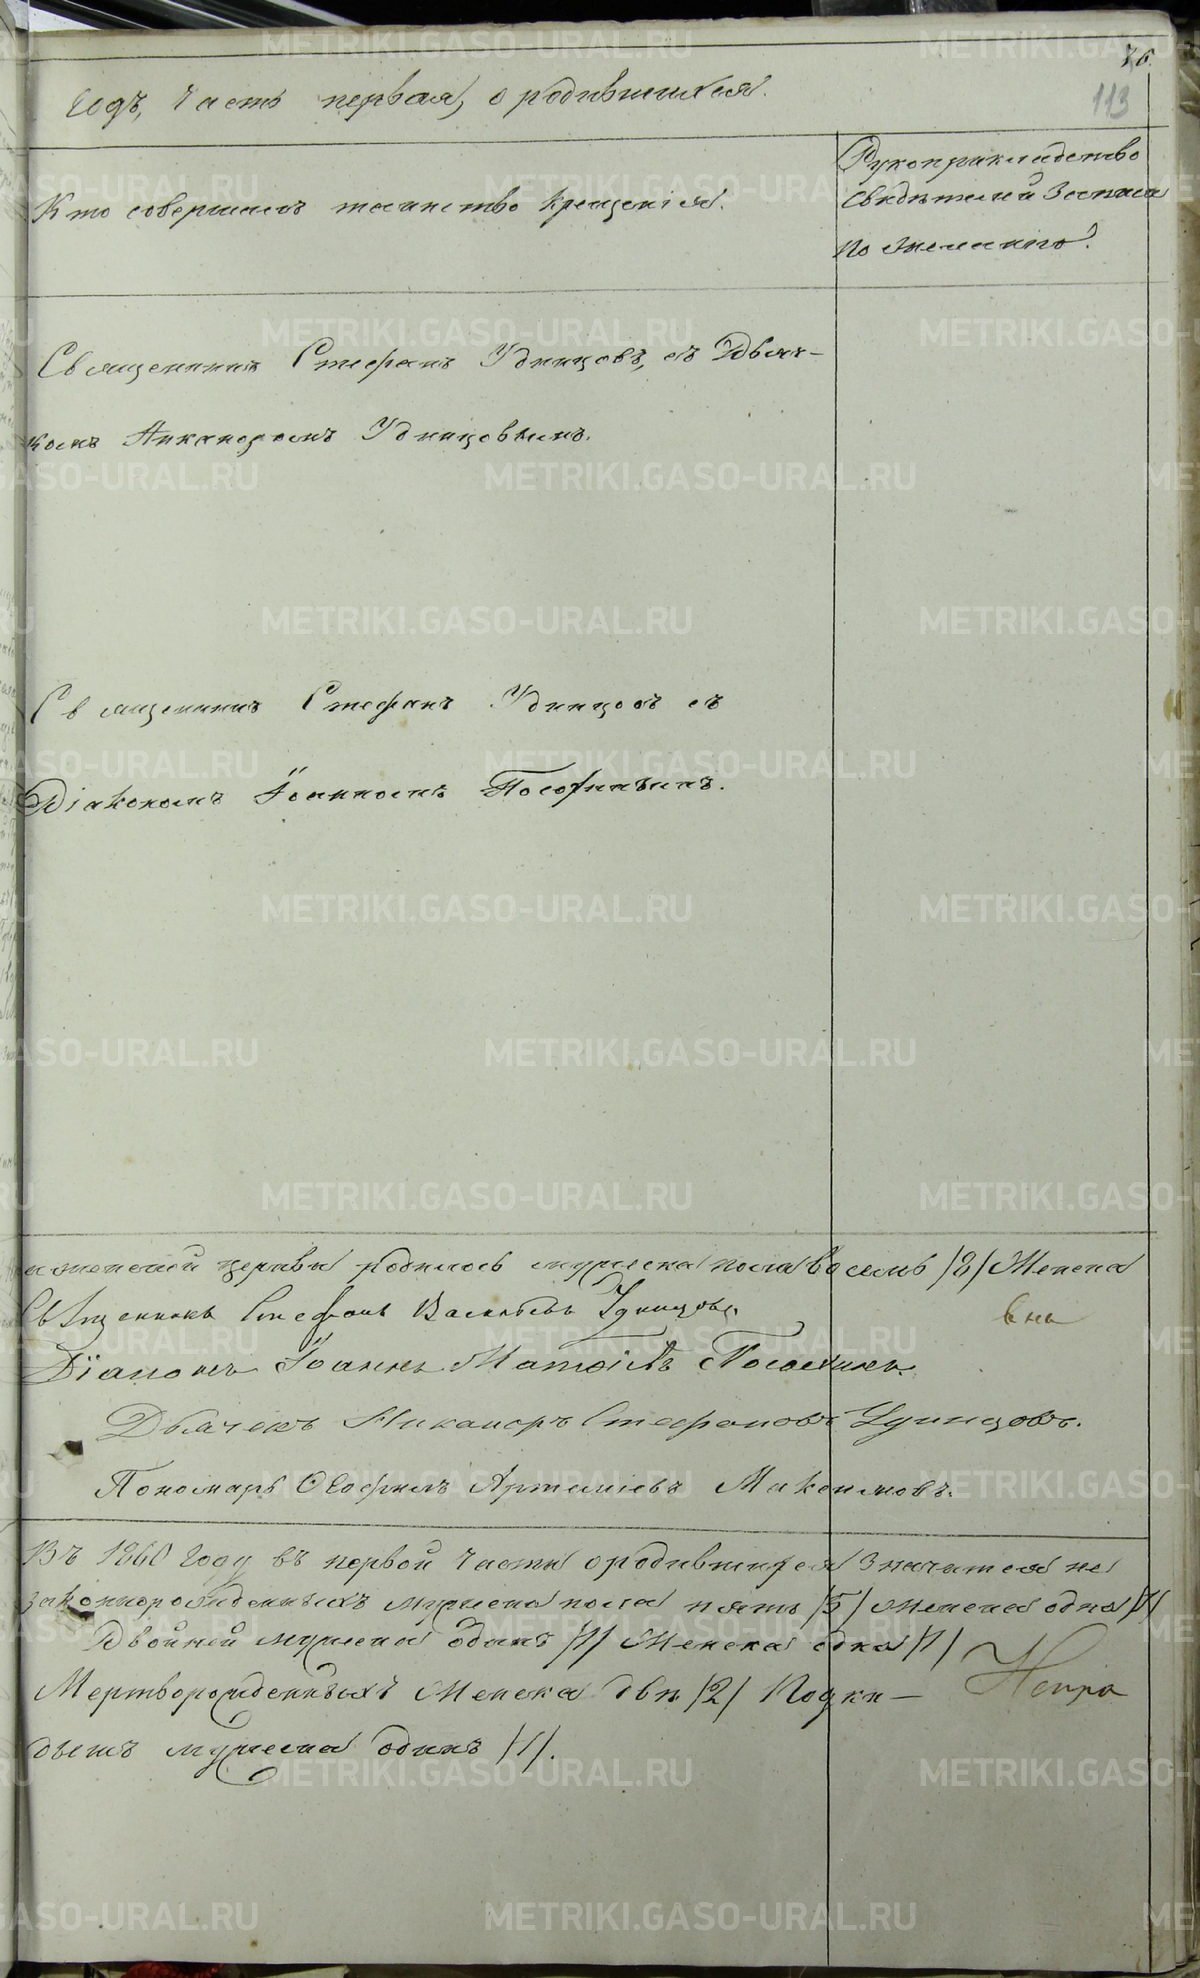 76.
113
годъ, часть первая, о родившихся.
Кто совершалъ таинство крещенія.
Рукоприкладство
свидѣтелей записи
по желанію.
Священникъ Стефанъ Удинцовъ, съ Дьяч-
комъ Никаноромъ Удинцовымъ.
Священникъ Стефанъ Удинцовъ съ
Діакономъ Іоанномъ
церкви родилось мужеска пола восемь /8/ Женска
Священникъ Стефанъ Васильевъ Удинцовъ.
Діаконъ Іоаннъ
Дьячекъ Никаноръ Стефановъ Удинцовъ.
Пономарь Ѳеофилъ Артемьевъ
Въ 1860 году въ первой части о родившихся значится не
законнорожденныхъ мужеска пола пять /5/ женска одна /1/
Двойней мужеска одинъ /1/ Женска одна /1/
Мертворожденныхъ Женска двѣ /2/ Подки-
дышъ мужеска одинъ /1/.
METRIKI.GASO-URAL.RU